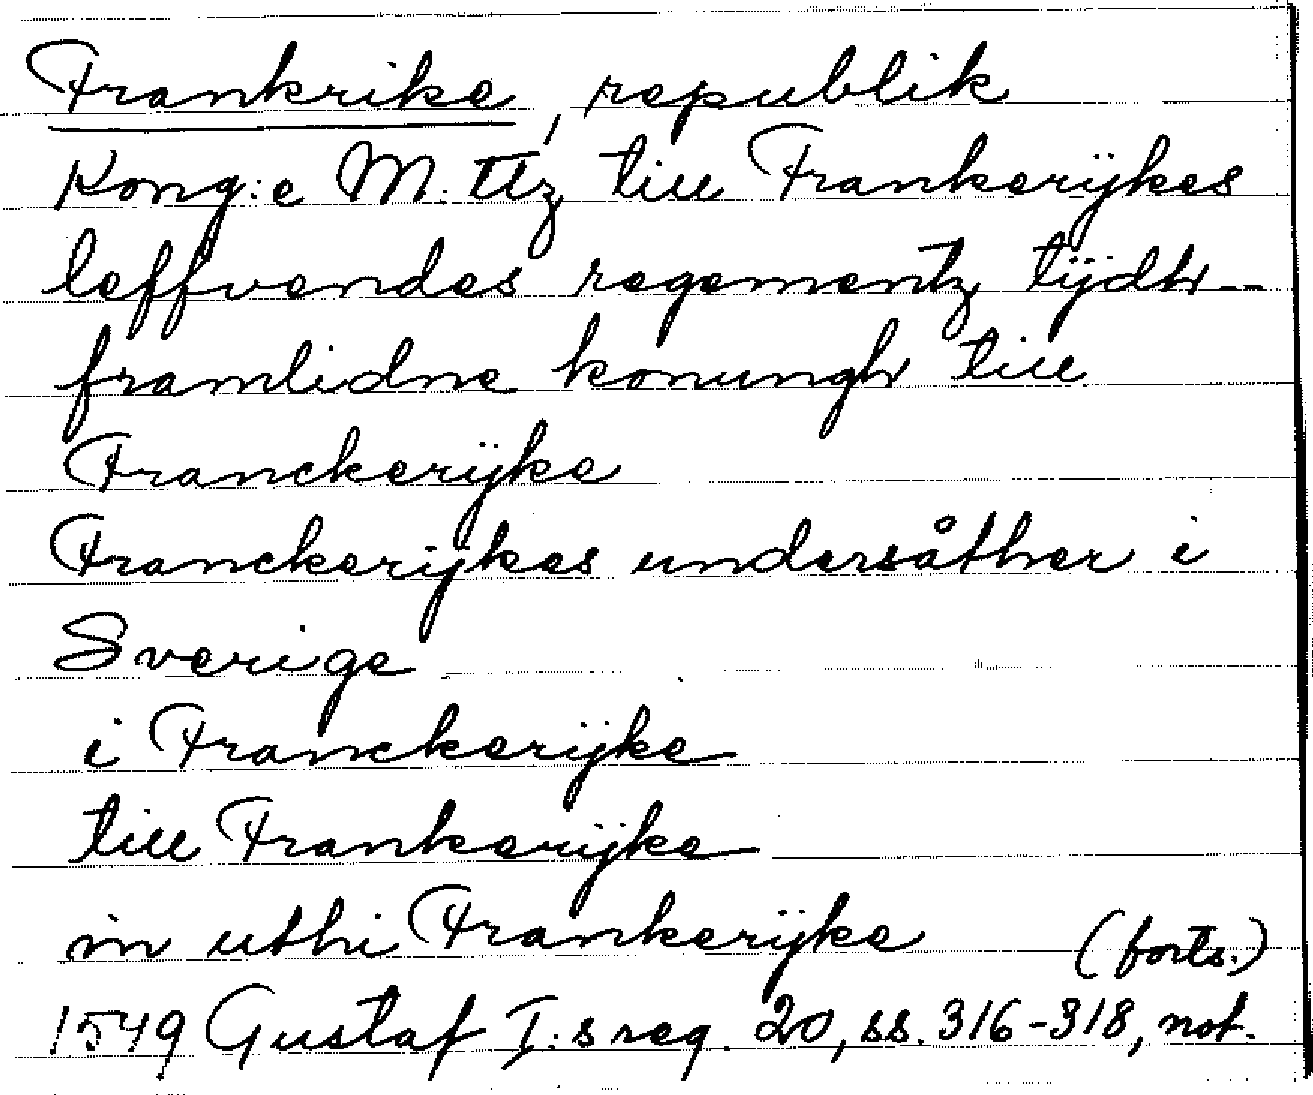 Frankrike, republik
Kong:e M:ttz till Frankerÿkes
leffvendes regementz tÿdh -
framlidne konungh till
Franckerÿke
Franckerijkes undersåther i
Sverige
i Franckerijke
till Frankerijke
in uthi Frankerÿke (forts.)
1549 Gustaf I:s reg. 20, ss. 316-318, not.